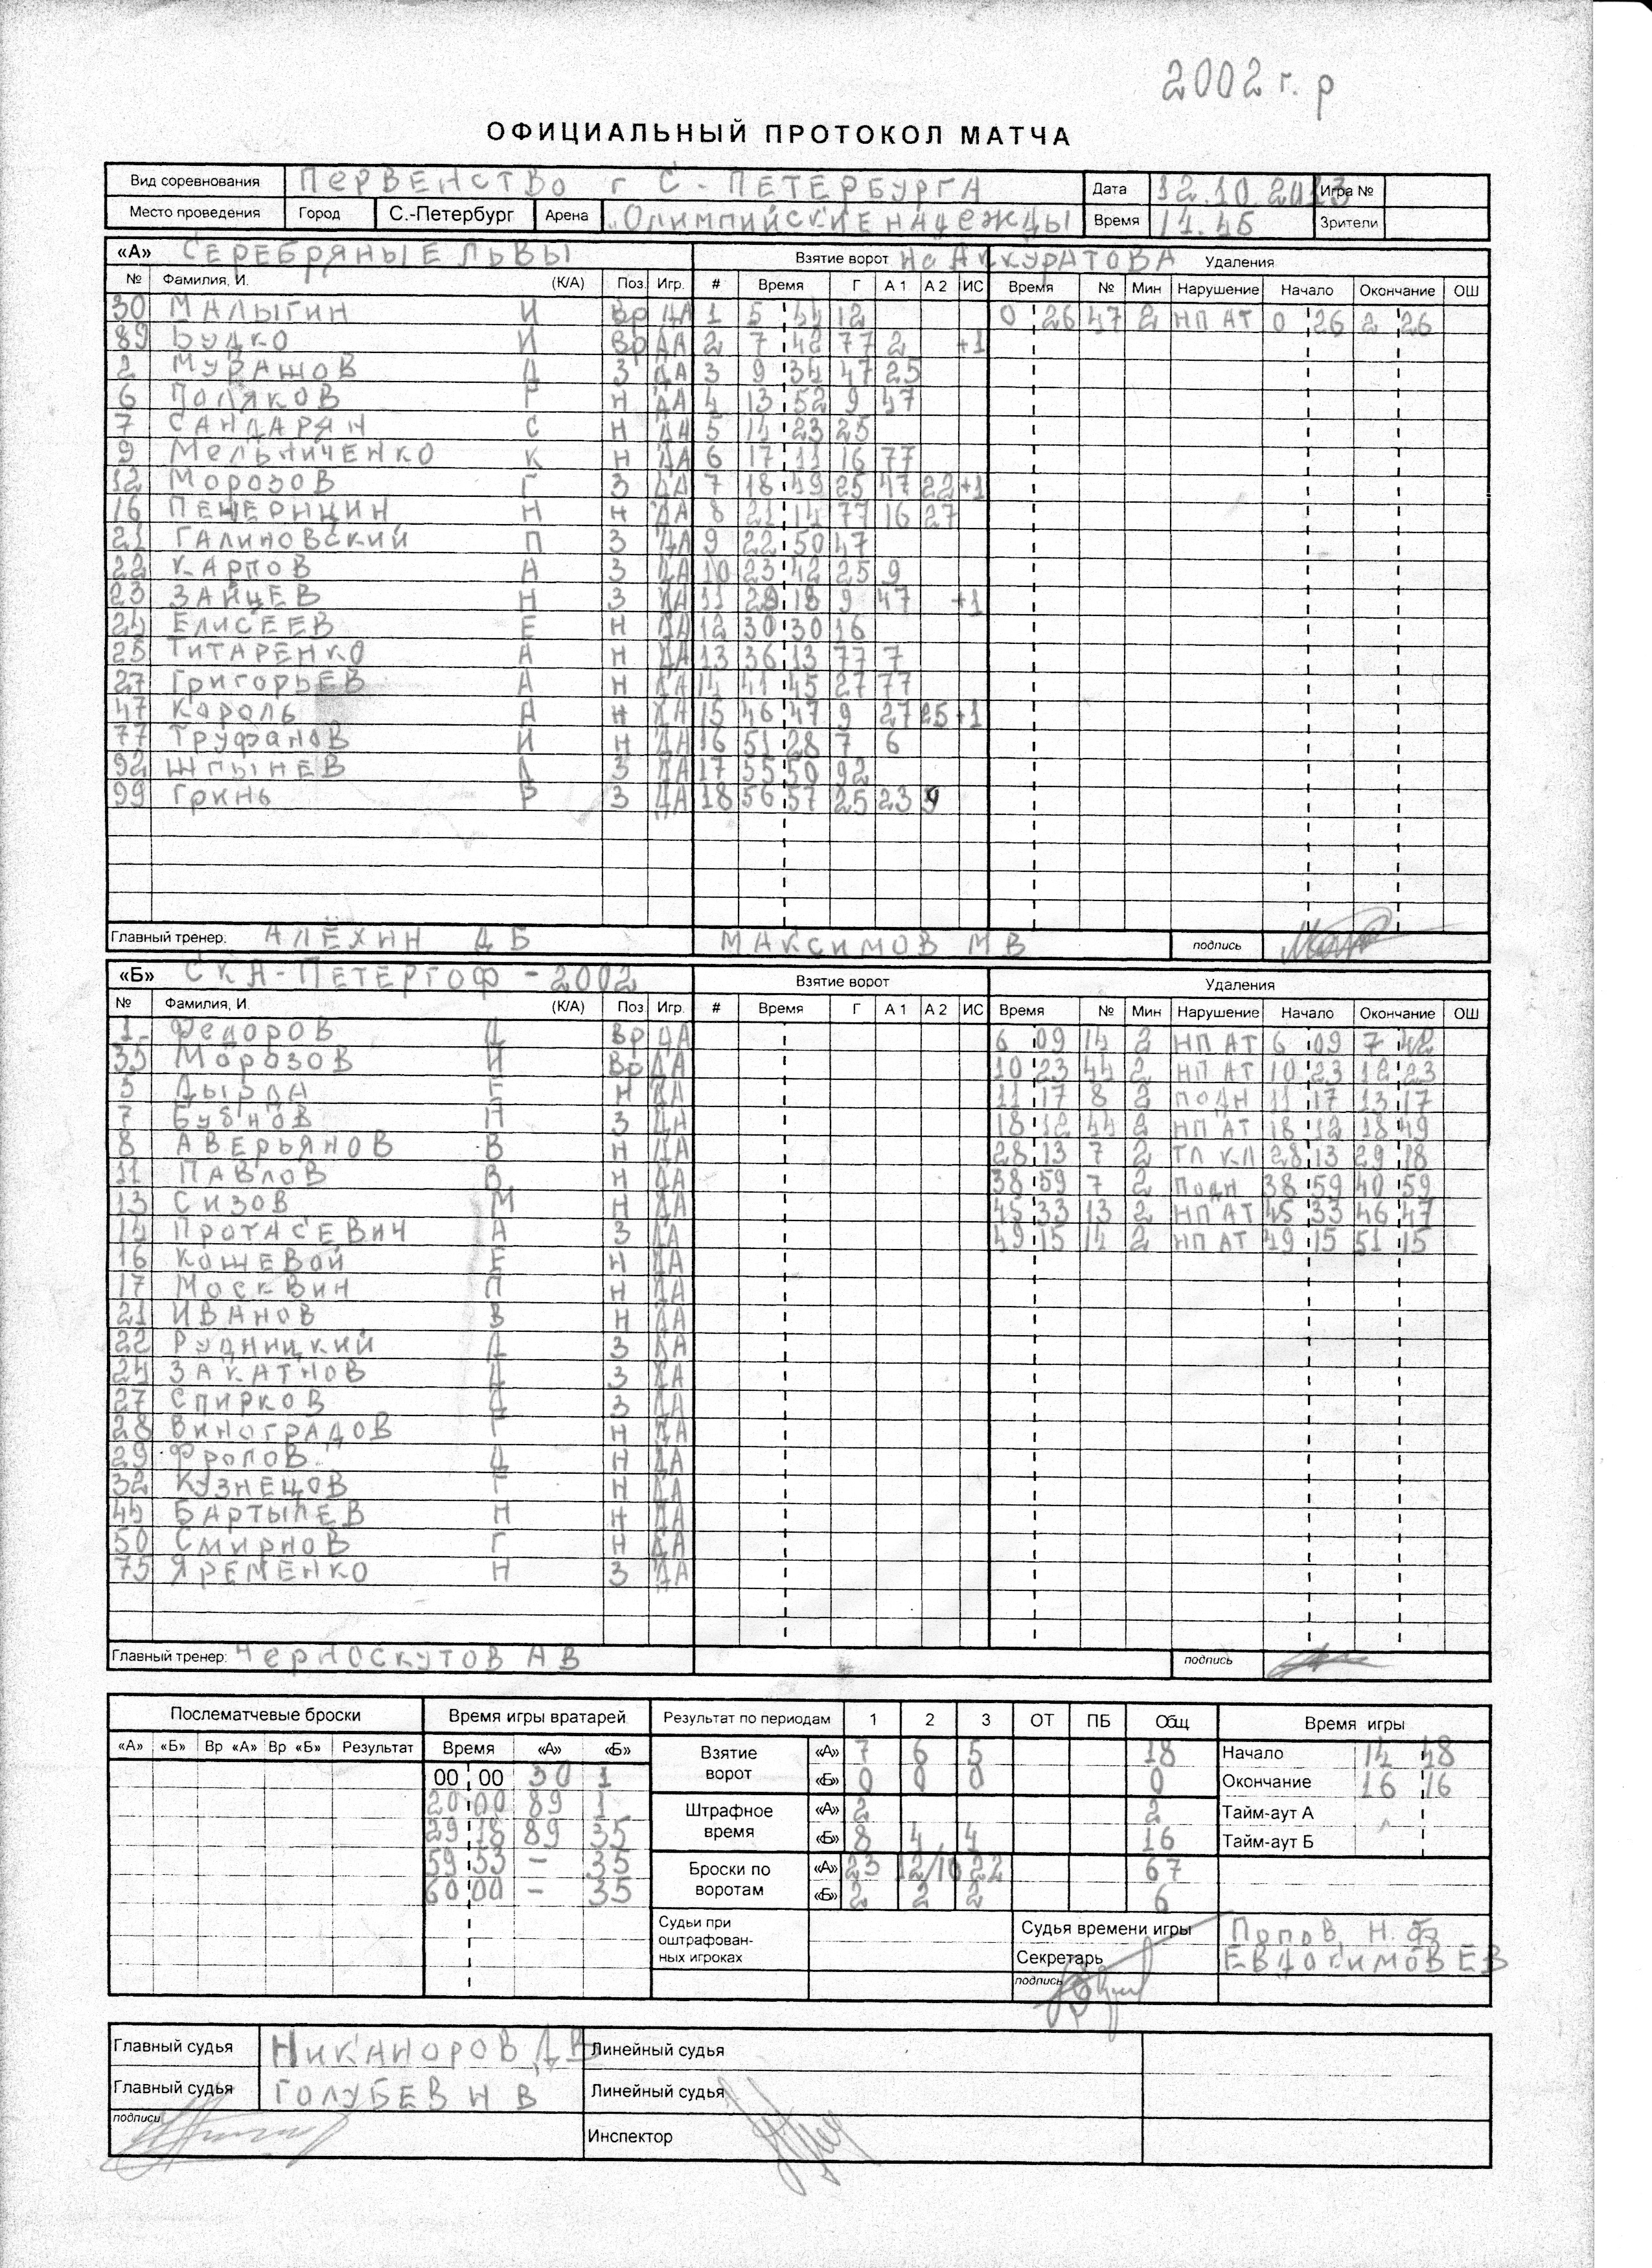 2002 г. р
ОФИЦИАЛЬНЫЙ ПРОТОКОЛ МАТЧА
Вид соревнования ПЕРВЕНСТВО г С-ПЕТЕРБУРГА Дата 12.10.2013 Игра №
Место проведения Город С.-Петербург Арена Олимпийские надежды Время 14.45 Зрители
«А» СЕРЕБРЯНЫЕ ЛЬВЫ Взятие ворот на АККУРАТОВА Удаления
№ Фамилия, И. (К/А) Поз Игр. # Время Г А 1 А 2 ИС Время № Мин Нарушение Начало Окончание ОШ
30 МАЛЫГИН И Вр ДА 1 5 44 12 0 26 47 2 НП АТ 0 26 2 26
89 БУДКО И Вр ДА 2 7 42 77 2 +1
2 МУРАШОВ Д З ДА 3 9 34 47 25
6 ПОЛЯКОВ Г Н ДА 4 13 52 9 47
7 САНДАРЯН С Н ДА 5 14 23 25
9 МЕЛЬНИЧЕНКО К Н ДА 6 17 11 16 77
12 МОРОЗОВ Г З ДА 7 18 49 25 47 22 +1
16 Н Н ДА 8 21 14 77 16 27
21 ГАЛИНОВСКИЙ П З ДА 9 22 50 47
22 КАРПОВ А З ДА 10 23 42 25 9
23 ЗАЙЦЕВ Н З ДА 11 29 18 9 47 +1
24 ЕЛИСЕЕВ Е Н ДА 12 30 30 16
25 ТИТАРЕНКО А Н ДА 13 36 13 77 7
27 ГРИГОРЬЕВ А Н ДА 14 41 45 27 77
47 КОРОЛЬ А Н ДА 15 46 47 9 27 25 +1
77 ТРУФАНОВ И Н ДА 16 51 28 7 6
92 ШПЫНЕВ Д З ДА 17 55 50 92
99 ГРИНЬ Р З ДА 18 56 57 25 23 9
Главный тренер: АЛЁХИН Д Б МАКСИМОВ М В подпись
«Б» СКА-ПЕТЕРГОФ-2002 Взятие ворот Удаления
№ Фамилия, И. (К/А) Поз Игр. # Время Г А 1 А 2 ИС Время № Мин Нарушение Начало Окончание ОШ
1 ФЕДОРОВ Д Вр ДА 6 09 14 2 НП АТ 6 09 7 42
35 МОРОЗОВ И Вр ДА 10 23 44 2 НП АТ 10 23 12 23
3 ДЫРДА Е Н ДА 11 17 8 2 ПОДН 11 17 13 17
7 БУБНОВ П З ДА 18 12 44 2 НП АТ 18 12 18 49
8 АВЕРЬЯНОВ В Н ДА 28 13 7 2 ТЛ КЛ 28 13 29 18
11 ПАВЛОВ В Н ДА 38 59 7 2 ПОДН 38 59 40 59
13 СИЗОВ М Н ДА 45 33 13 2 НП АТ 45 33 46 47
14 ПРОТАСЕВИЧ А З ДА 49 15 14 2 НП АТ 49 15 51 15
16 КОШЕВОЙ Е Н ДА
17 МОСКВИН П Н ДА
21 ИВАНОВ В Н ДА
22 РУДНИЦКИЙ Д З ДА
24 ЗАКАТНОВ Д З ДА
27 СПИРКОВ Д З ДА
28 ВИНОГРАДОВ Г Н ДА
29 ФРОЛОВ Д Н ДА
32 КУЗНЕЦОВ Г Н ДА
44 БАРТЫЛЕВ Н Н ДА
50 СМИРНОВ Г Н ДА
75 ЯРЕМЕНКО Н З ДА
Главный тренер: ЧЕРНОСКУТОВ А В подпись
Послематчевые броски Время игры вратарей Результат по периодам 1 2 3 ОТ ПБ Общ Время игры
«А» «Б» Вр «А» Вр «Б» Результат Время «А» «Б» Взятие ворот «А» 7 6 5 18 Начало 14 48
00 00 30 1 «Б» 0 0 0 0 Окончание 16 16
20 00 89 1 Штрафное время «А» 2 2 Тайм-аут А
29 18 89 35 «Б» 8 4 4 16 Тайм-аут Б
59 53 – 35 Броски по воротам «А» 23 22 67
60 00 – 35 «Б» 2 2 2 6
Судьи при оштрафован-ных игроках Судья времени игры ПОПОВ Н.
Секретарь ЕВДОКИМОВ ЕВ
подпись
Главный судья НИКАНОРОВ Д В Линейный судья
Главный судья ГОЛУБЕВ Н В Линейный судья
подписи Инспектор